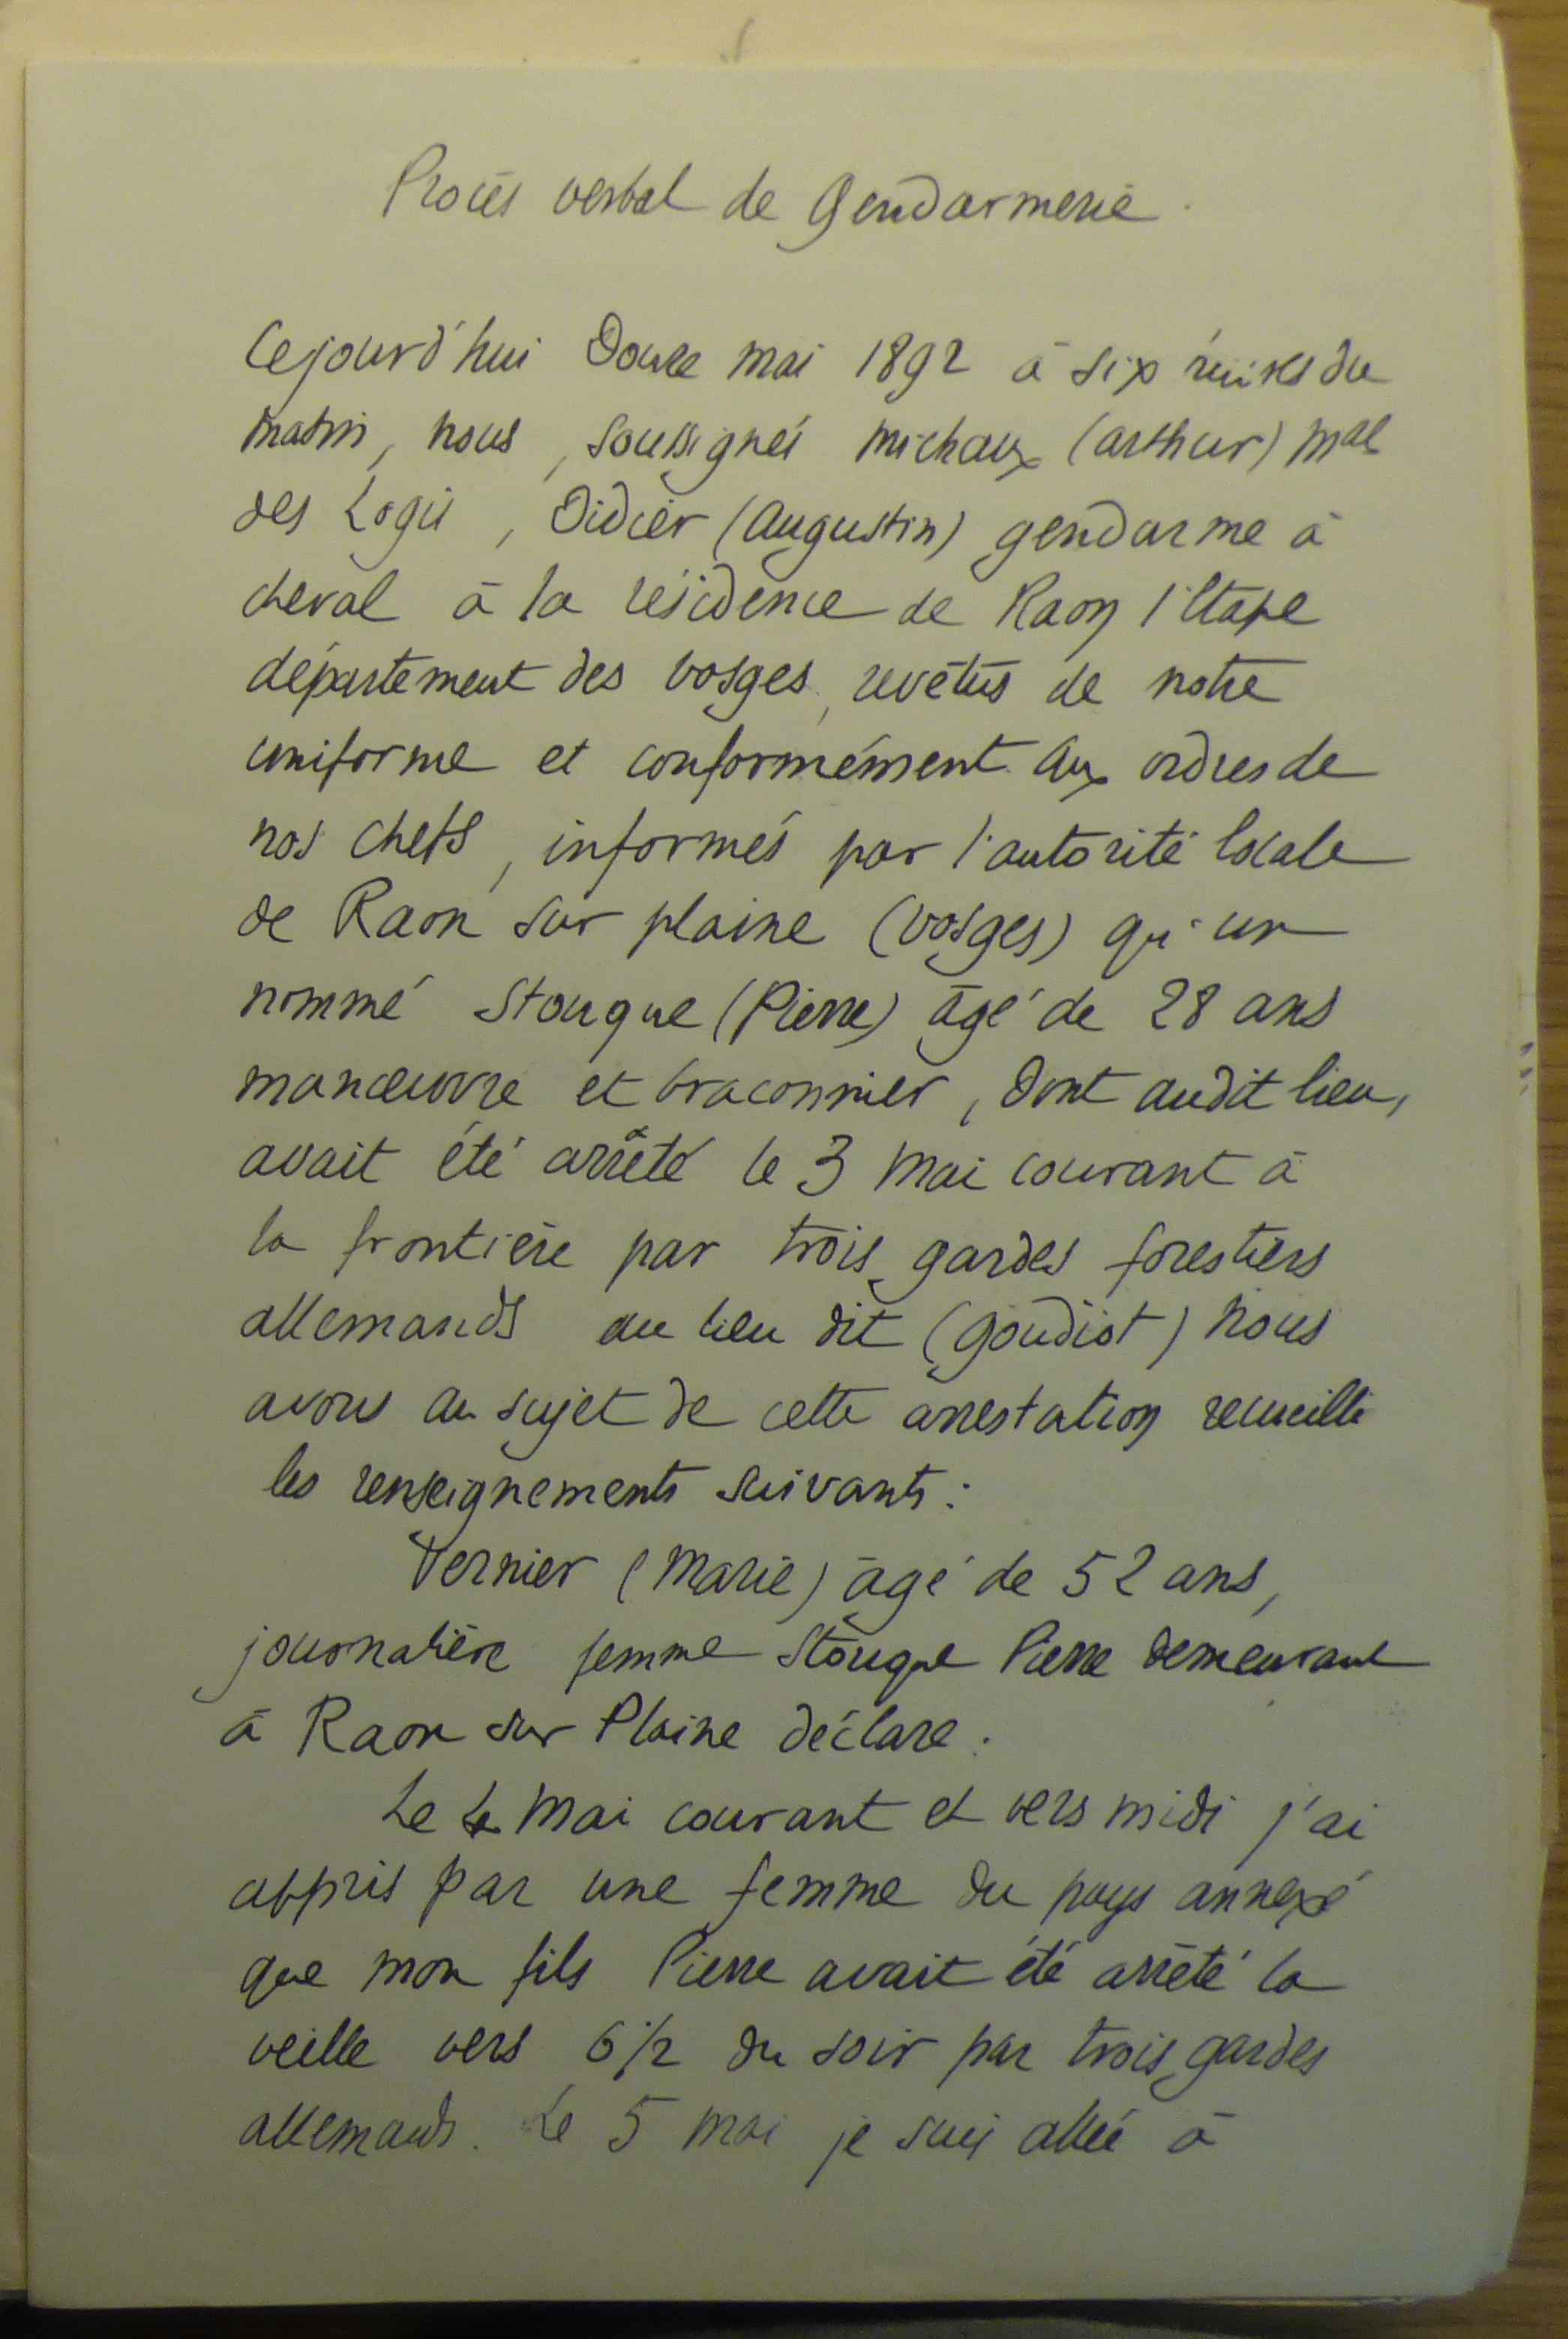 Procès verbal de Gendarmerie.
Cejourd'hui Douze mai 1892 à six heures du
matin, nous, soussignés Michaux (arthur) Mal
des Logis, Didier (Augustin) gendarme à
cheval à la résidence de Raon l'Etape
département des vosges, revêtus de notre
uniforme et conformément aux ordres de
nos chefs, informés par l'autorité locale
de Raon sur plaine (vosges) qu'un
nommé Stouque (Pierre) âgé de 28 ans
manœuvre et braconnier, dont audit lieu,
avait été arrêté le 3 Mai courant à
la frontière par trois gardes forestiers
allemands au lieu dit (goudiot) nous
avons au sujet de cette arrestation recueilli
les renseignements suivants :
Vernier (Marie) âgé de 52 ans,
journalière femme Stouque Pierre demeurant
à Raon sur Plaine déclare.
Le 4 Mai courant et vers midi j'ai
appris par une femme du pays annexé
que mon fils Pierre avait été arrêté la
veille vers 6 1/2 du soir par trois gardes
allemands. Le 5 mai je suis allée à